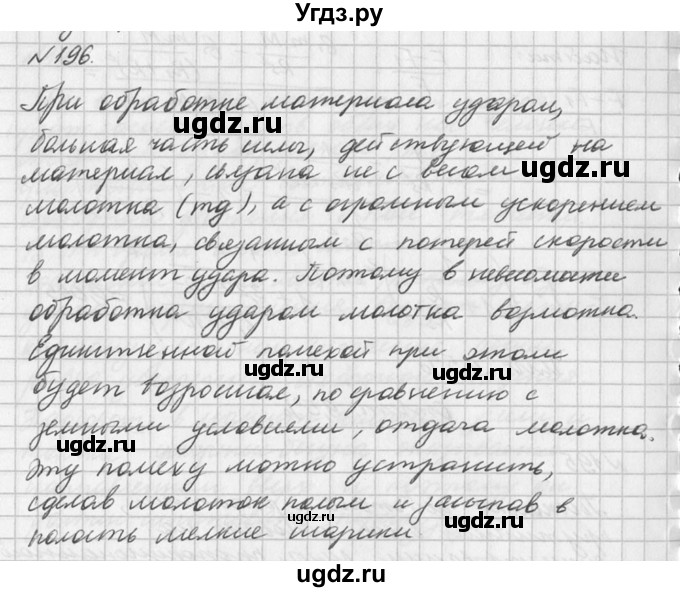 Угдз.ру
№196.
При обработке материала ударом,
ugdz.ru
большая часть силы, действующей на
материал, связана не с весом
ugdz.ru
молотка (mg), а с огромным ускорением
молотка, связанным с потерей скорости
ugdz.ru
в момент удара. Поэтому в невесомости
обработка ударом молотка возможна.
ugdz.ru
Единственной помехой при этом
ugdz.ru
будет возросшая, по сравнению с
земными условиями, отдача молотка.
ugdz.ru
Эту помеху можно устранить,
сделав молоток полым и засыпав в
ugdz.ru
полость мелкие шарики.
ugdz.ru
ugdz.ru